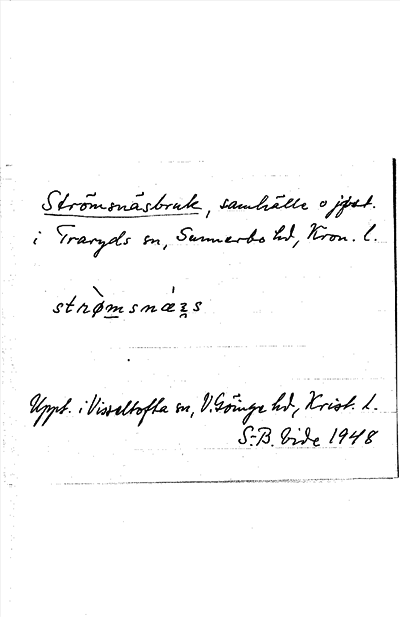 Strömsnäsbruk, samhälle o jpst.
i Traryds sn, Sunnerbo hd, Kron. l.
strø̀m̲snæ̀ʒs
Uppt. i Visseltofta sn, V. Göinge hd, Krist. l.
S.-B. Vide 1948